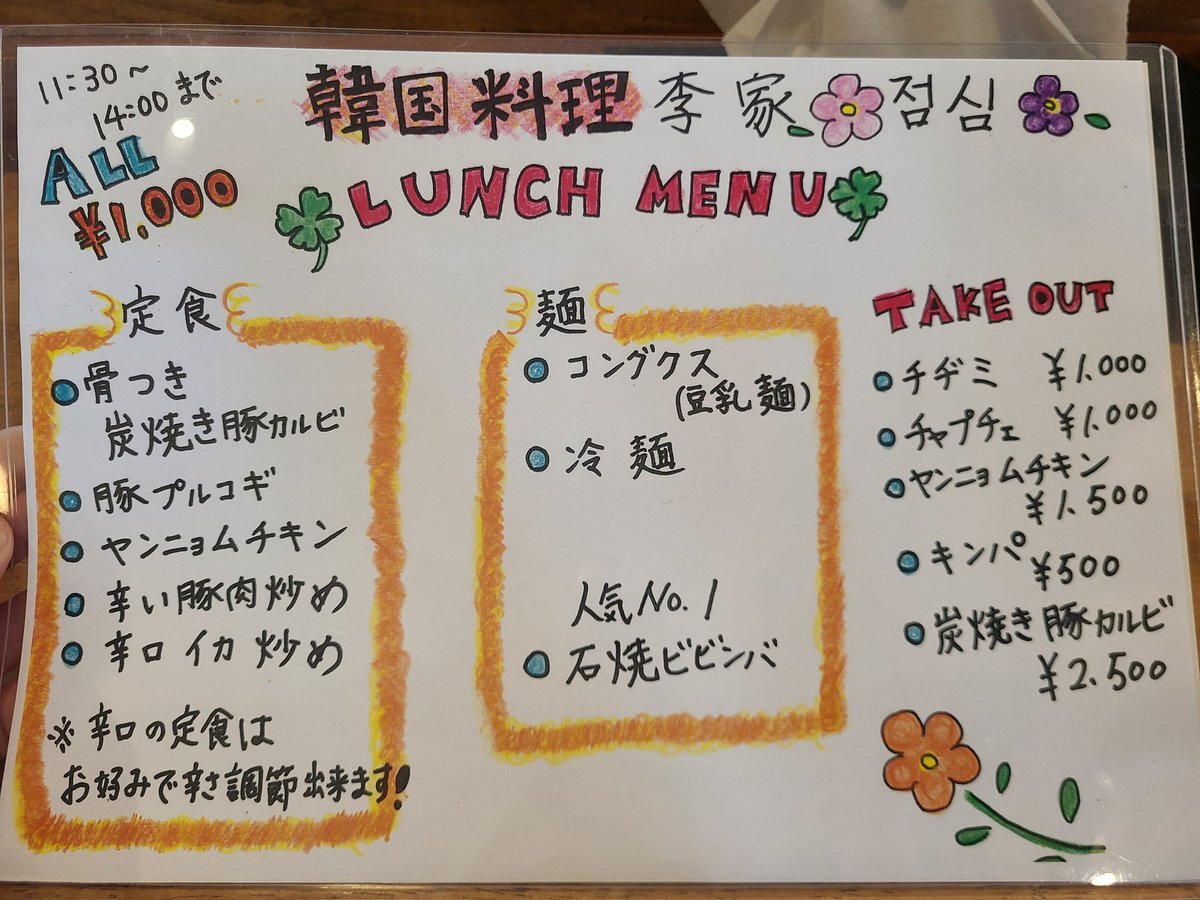 11:30～
14:00まで
ALL
¥1,000
韓国料理 李家 점심
LUNCH MENU
定食
骨つき
炭焼き豚カルビ
豚プルコギ
ヤンニョムチキン
辛い豚肉炒め
辛口イカ炒め
※辛口の定食は
お好みで辛さ調節出来ます!
麺
コングクス
(豆乳麺)
冷麺
人気No.1
石焼ビビンバ
TAKE OUT
チヂミ ¥1.000
チャプチェ ¥1.000
ヤンニョムチキン
¥1.500
キンパ ¥500
炭焼き豚カルビ
¥2.500